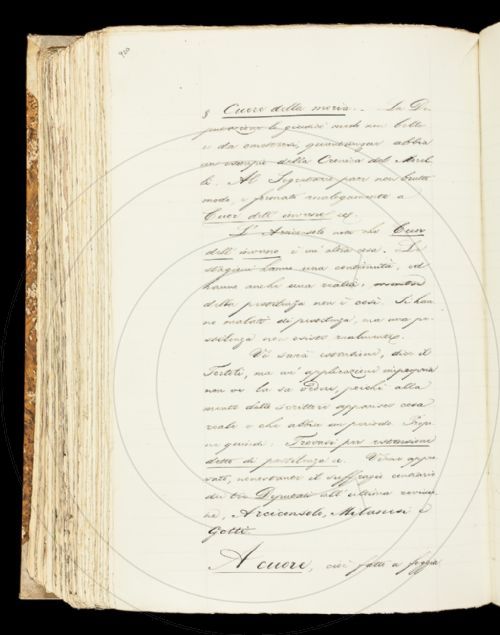 920
§ Cuore della moria. . La De
putazione la giudicò modo non bello
e da omettersi, quantunque abbia
un esempio della Cronica del Morel
li. Al Segretario pare non brutto
modo, e formato analogamente a
Cuor dell' inverno ec.
L' Arciconsolo nota che Cuor
dell' inverno è un' altra cosa. Le
stagioni hanno una continuità, ed
hanno anche una realtà; mentre
della pestilenza non è così. Si han
no malati di pestilenza, ma una pe
stilenza non esiste realmente.
Vi sarà estensione, dice il
Tortoli, ma un' applicazione impropria
non ve la sa vedere, perchè alla
mente dello scrittore apparisce cosa
reale e che abbia un periodo. Propo
ne quindi: Trovasi per estensione
detto di pestilenza ec. Viene appro
vato, nonostante il suffragio contrario
dei tre Deputati all' ultima revisio
ne, Arciconsolo, Milanesi e
Gotti.
A cuore, così fatto a foggia